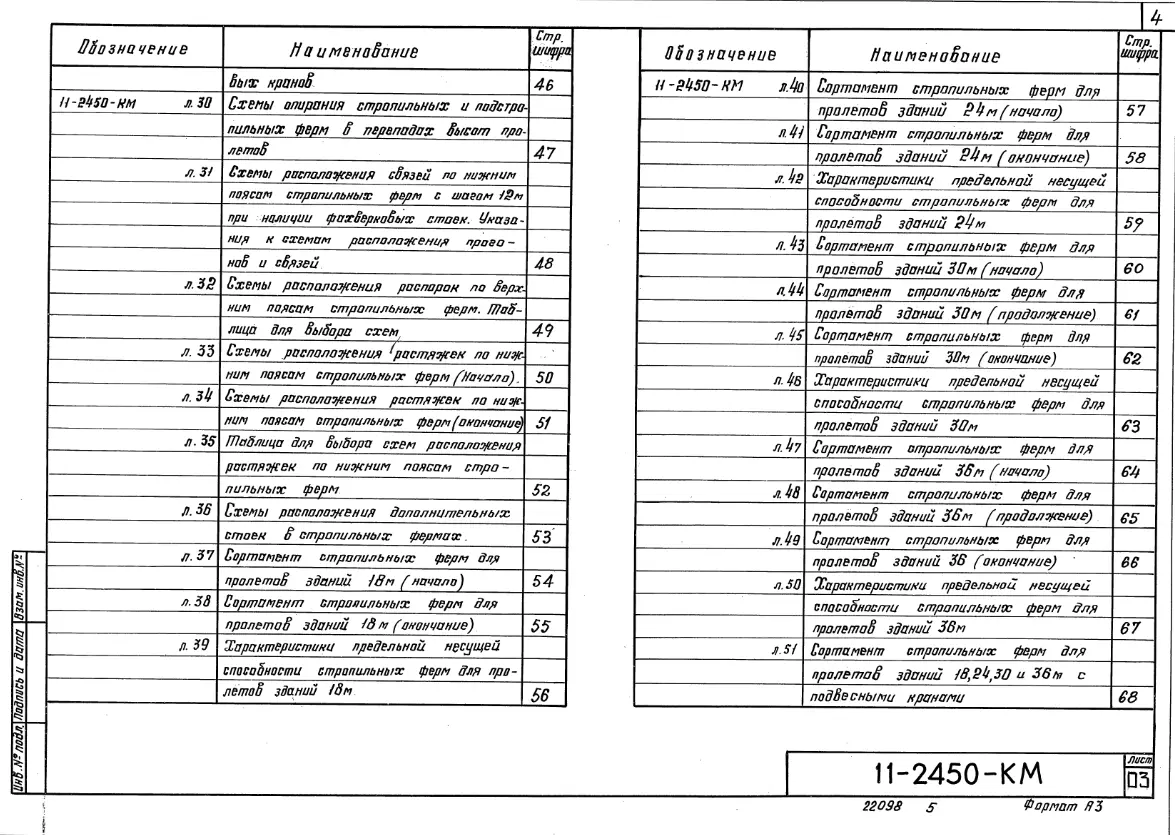 4
Обозначение Наименование Стр. шифра
вых кранов 46
11-2450-КМ л.30 Схемы опирания стропильных и подстро-
пильных ферм в перепадах высот про-
летов 47
л.31 Схемы расположения связей по нижним
поясам стропильных ферм с шагом 12м
при наличии фахверковых стоек. Указа-
ния к схемам расположения прого-
нов и связей 48
л.32 Схемы расположения распорок по верх-
ним поясам стропильных ферм. Таб-
лица для выбора схем 49
л.33 Схемы расположения растяжек по ниж-
ним поясам стропильных ферм (Начало). 50
л.34 Схемы расположения растяжек по ниж-
ним поясам стропильных ферм (окончание) 51
л.35 Таблица для выбора схем расположения
растяжек по нижним поясам стро-
пильных ферм 52
л.36 Схемы расположения дополнительных
стоек в стропильных фермах. 53
л.37 Сортамент стропильных ферм для
пролетов зданий 18м (начало) 54
л.38 Сортамент стропильных ферм для
пролетов зданий 18м (окончание) 55
л.39 Характеристики предельной несущей
способности стропильных ферм для про-
летов зданий 18м 56
Обозначение Наименование Стр. шифра
11-2450-КМ л.40 Сортамент стропильных ферм для
пролетов зданий 24м (начало) 57
л.41 Сортамент стропильных ферм для
пролетов зданий 24м (окончание) 58
л.42 Характеристики предельной несущей
способности стропильных ферм для
пролетов зданий 24м 59
л.43 Сортамент стропильных ферм для
пролетов зданий 30м (начало) 60
л.44 Сортамент стропильных ферм для
пролетов зданий 30м (продолжение) 61
л.45 Сортамент стропильных ферм для
пролетов зданий 30м (окончание) 62
л.46 Характеристики предельной несущей
способности стропильных ферм для
пролетов зданий 30м 63
л.47 Сортамент стропильных ферм для
пролетов зданий 36м (начало) 64
л.48 Сортамент стропильных ферм для
пролетов зданий 36м (продолжение) 65
л.49 Сортамент стропильных ферм для
пролетов зданий 36 (окончание) 66
л.50 Характеристики предельной несущей
способности стропильных ферм для
пролетов зданий 36м 67
л.51 Сортамент стропильных ферм для
пролетов зданий 18,24,30 и 36м с
подвесными кранами 68
Инв.№ подл. Подпись и дата Взам. инв.№
11-2450-КМ Лист 03
22098 5 Формат А3